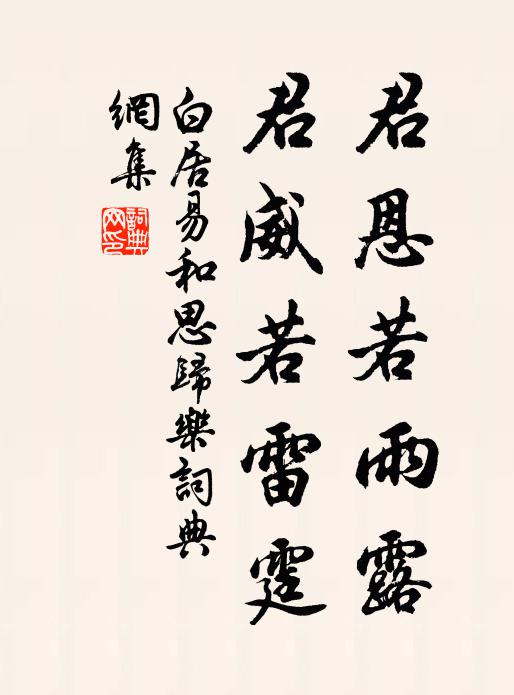 君恩若雨露
君威若雷霆
白居易和思歸樂詞典
網集
詞典網印